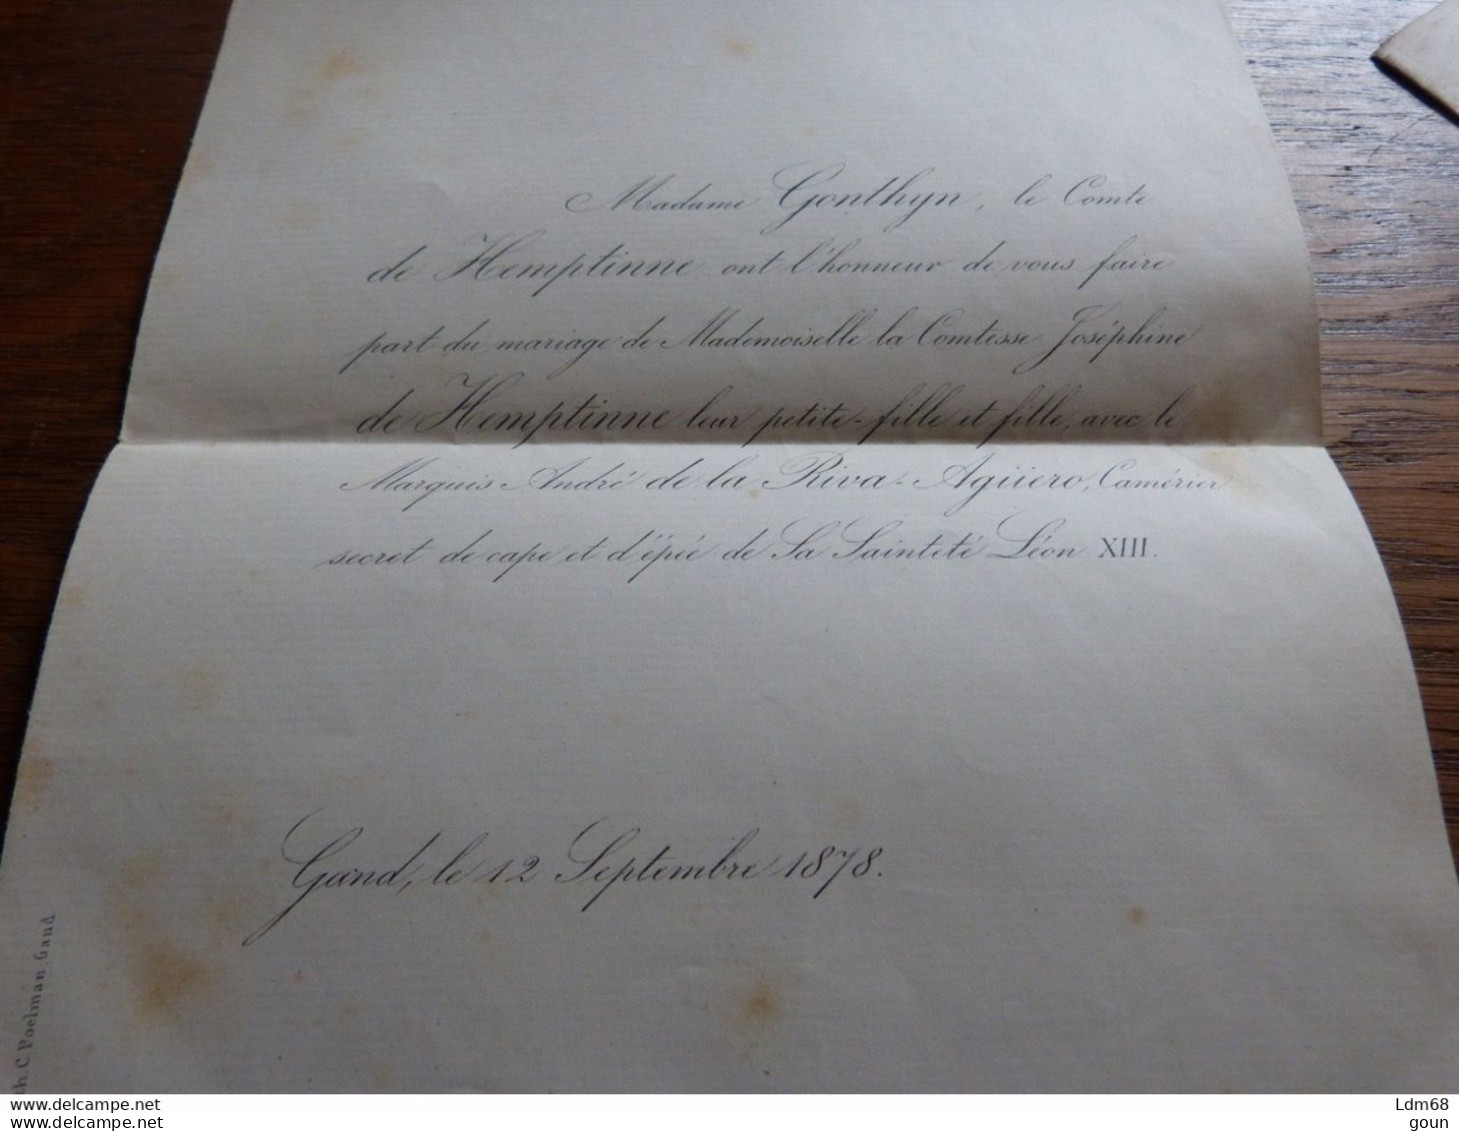 Madame Gonthyn, le Comte
de Hemptinne ont l'honneur de vous faire
part du mariage de Mademoiselle la Comtesse Joséphine
de Hemptinne leur petite-fille et fille, avec le
Marquis André de la Riva-Agüero, Camérier
secret de cape et d'épée de Sa Sainteté Léon XIII.
Gand, le 12 Septembre 1878.
C. Poelman Gand
www.delcampe.net
www.delcampe.net
Ldm68
goun